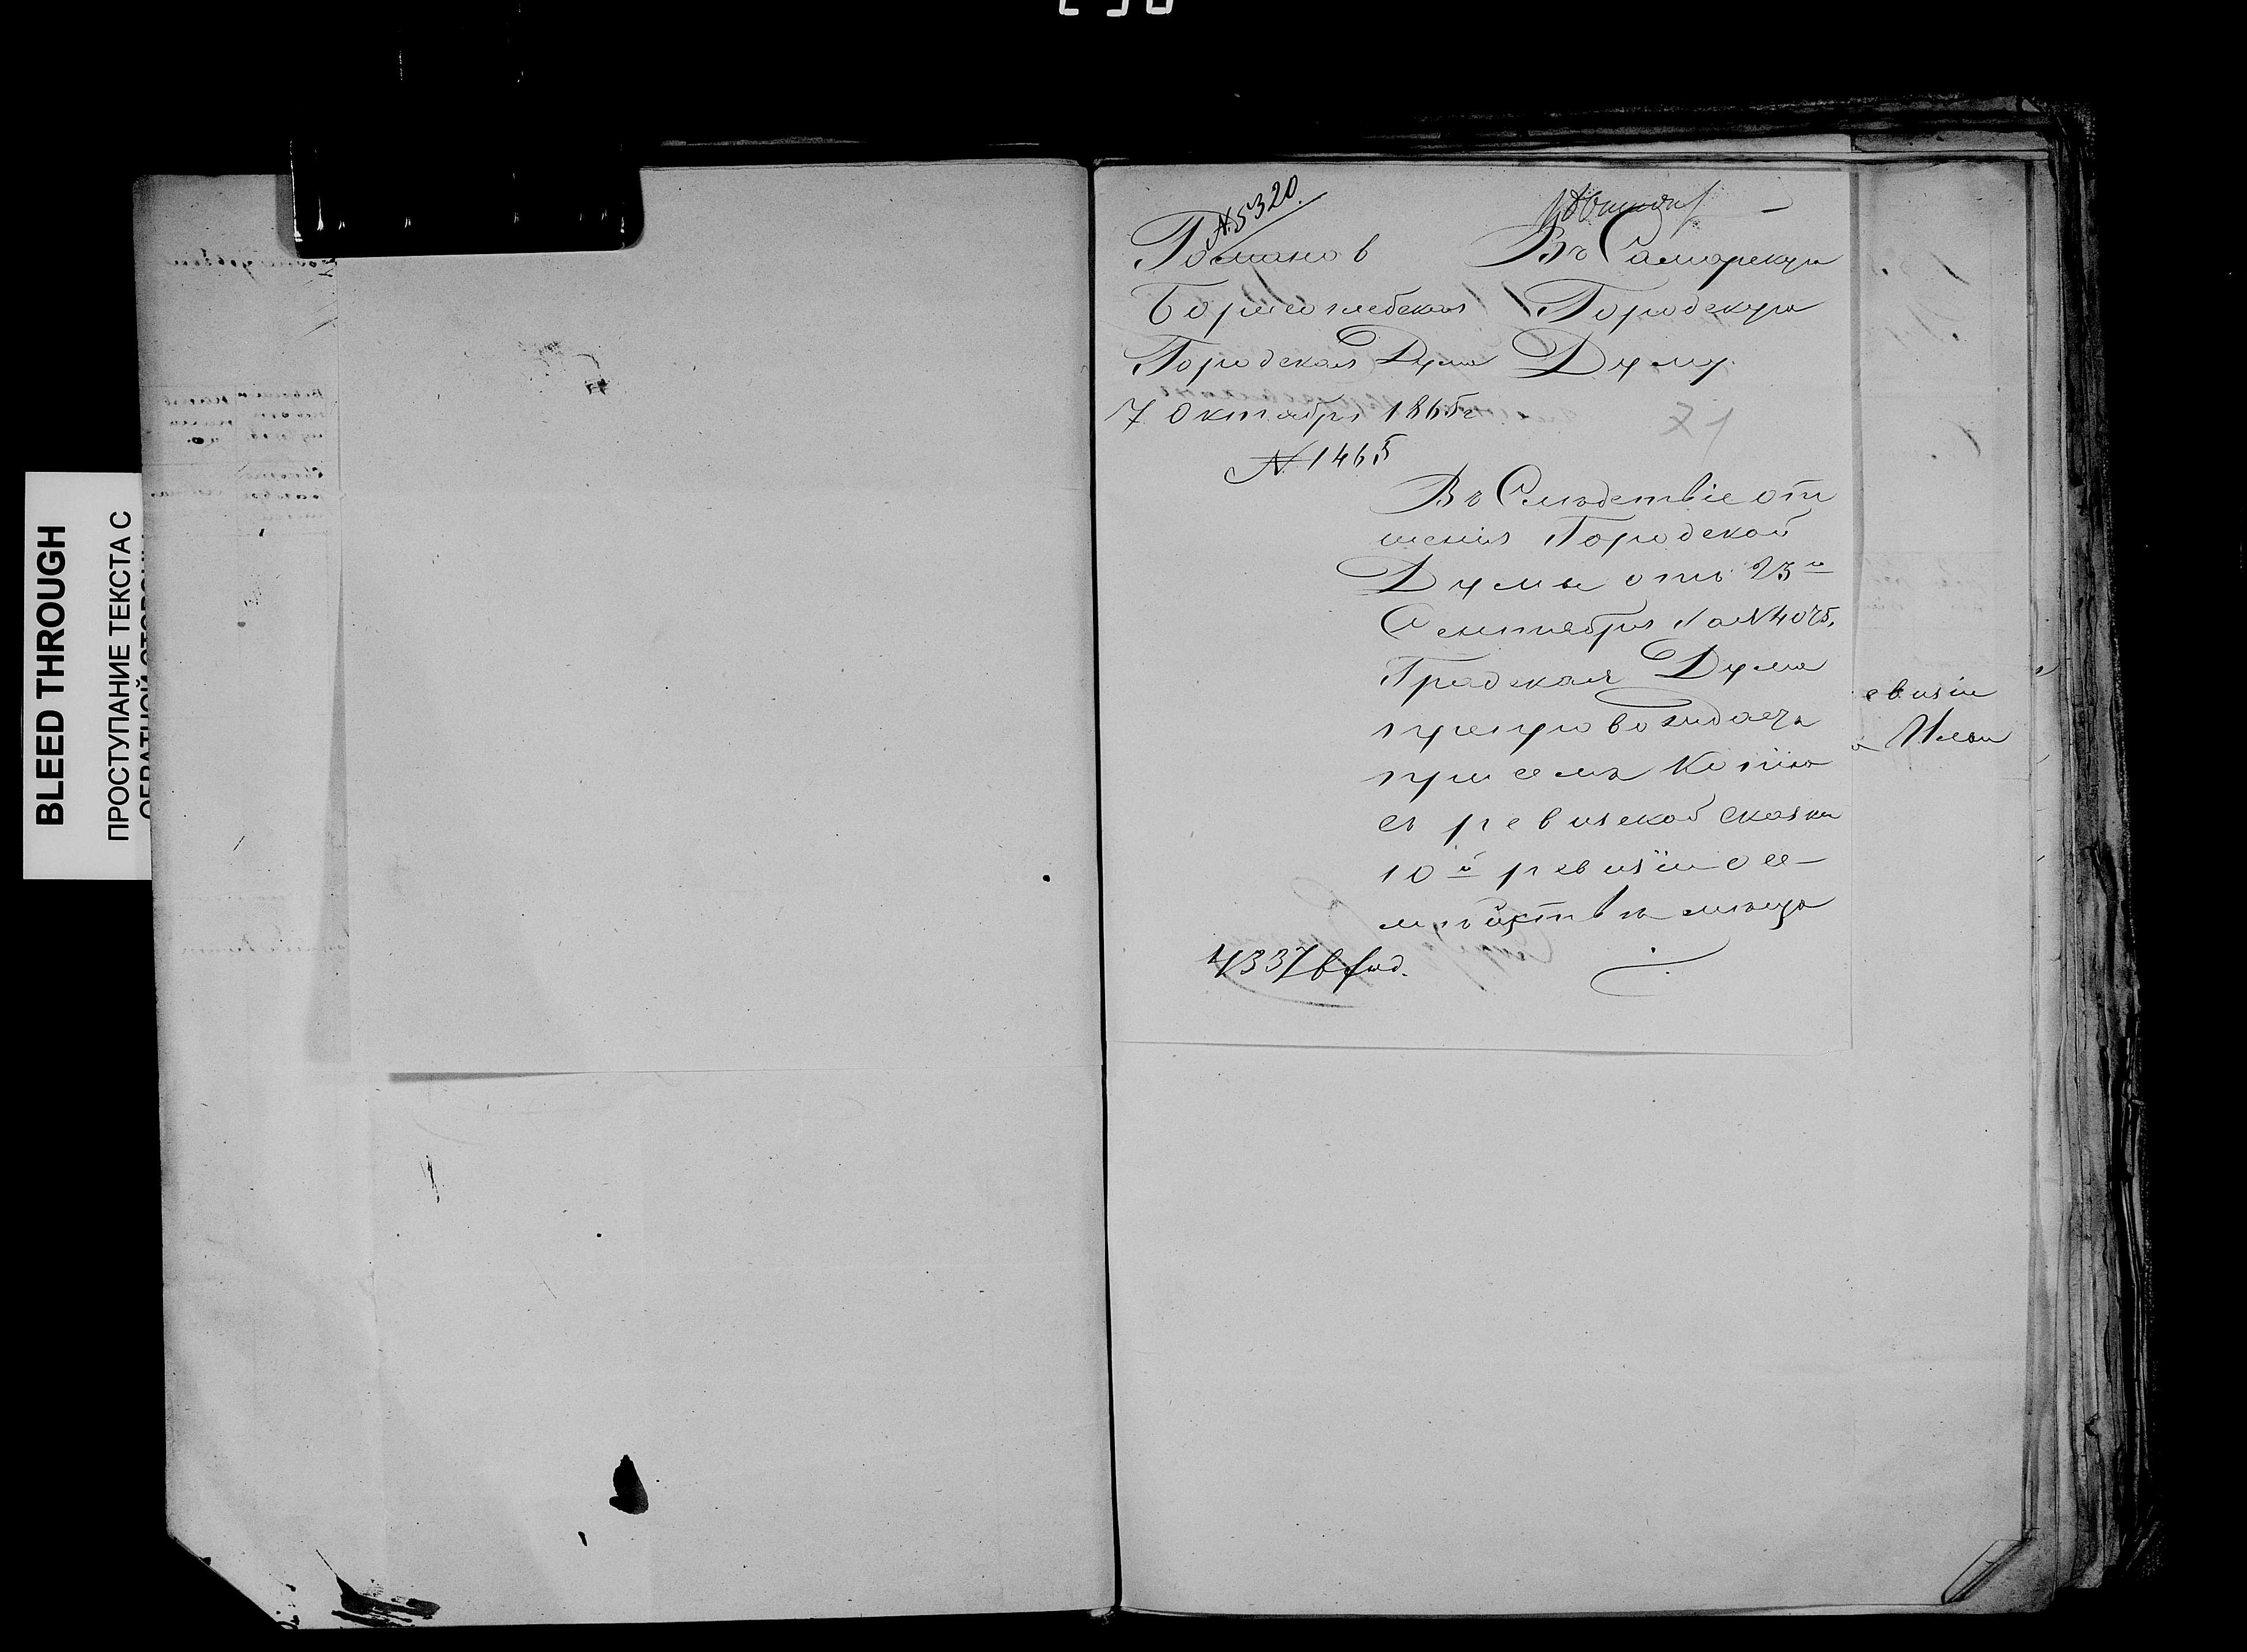 BLEED THROUGH
ПРОСТУПАНИЕ ТЕКСТА С
№ 5320.
Романов
Борисоглебская
Городская Дума
7 Октября 1865г
№ 1465
Въ Самарскую
Городскую
Думу.
71
Въ Следствіе отн
шенія Городской
Думы отъ 23го
Сентября за № 4075,
Градская Дума
препровождаетъ
при семъ Копію
съ ревизской сказки
10й ревизіи о се-
мѣйствѣ мѣща
4337
евизіи